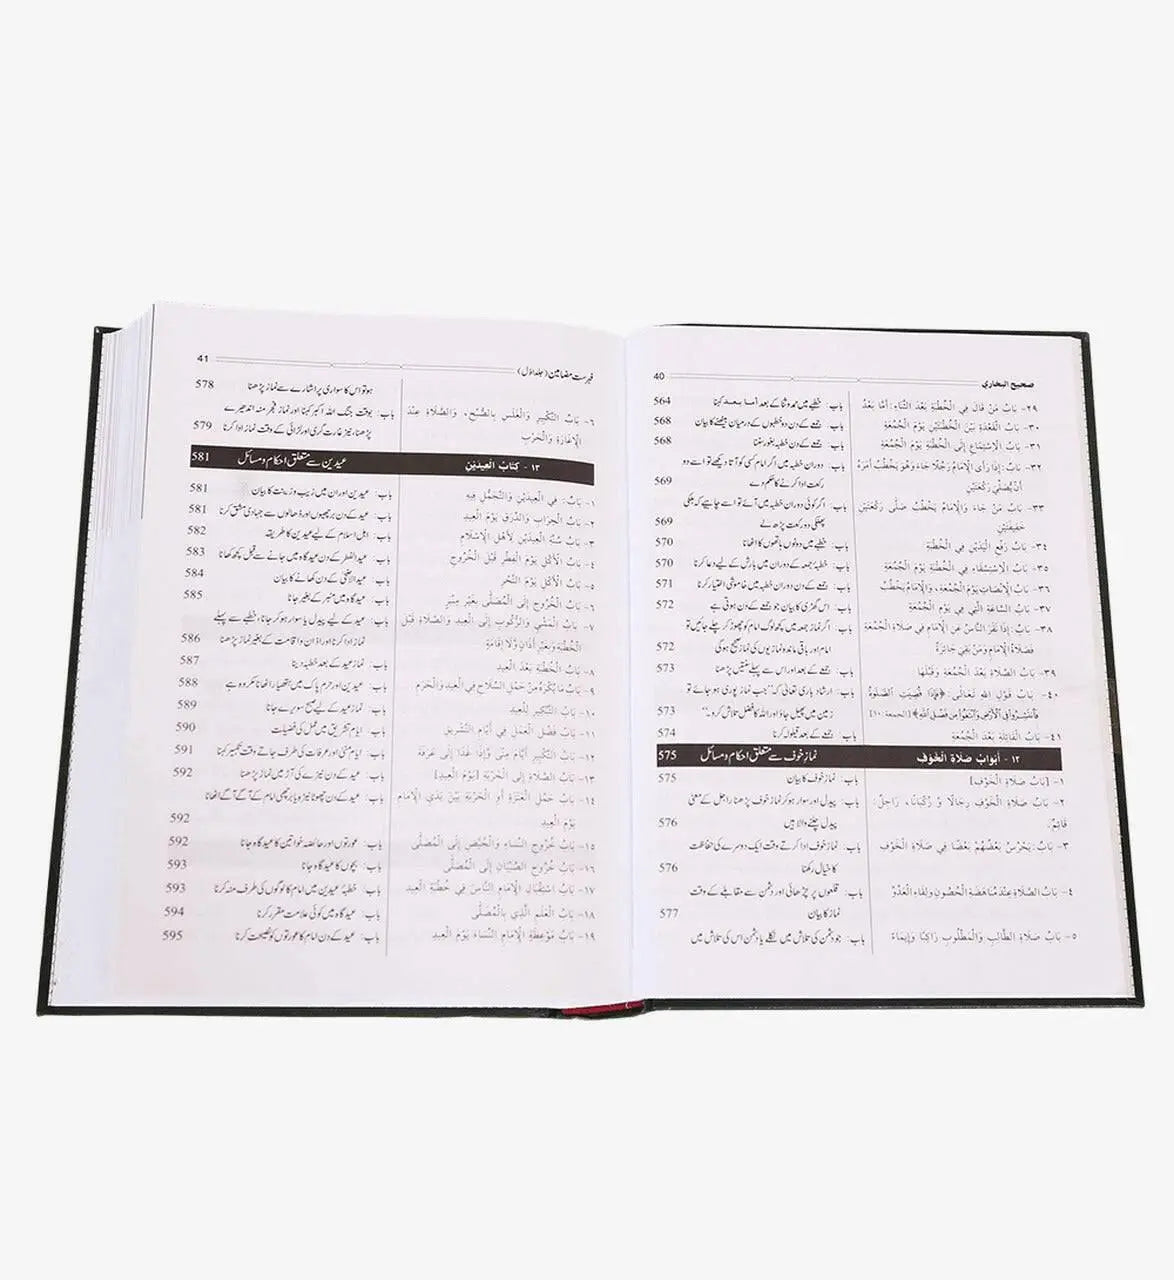 صحيح البخاري 40
٢٩- بَابُ مَنْ قَالَ فِي الْخُطْبَةِ بَعْدَ الثَّنَاءِ: أَمَّا بَعْدُ باب: خطبے میں حمد و ثنا کے بعد أما بعد کہنا 564
٣٠- بَابُ الْقَعْدَةِ بَيْنَ الْخُطْبَتَيْنِ يَوْمَ الْجُمُعَةِ باب: جمعے کے دن دو خطبوں کے درمیان بیٹھنے کا بیان 568
٣١- بَابُ الِاسْتِمَاعِ إِلَى الْخُطْبَةِ يَوْمَ الْجُمُعَةِ باب: جمعے کے دن خطبہ بغور سننا 568
٣٢- بَابٌ: إِذَا رَأَى الْإِمَامُ رَجُلًا جَاءَ وَهُوَ يَخْطُبُ أَمَرَهُ باب: دوران خطبہ میں اگر امام کسی کو آتا دیکھے تو اسے دو
أَنْ يُصَلِّيَ رَكْعَتَيْنِ رکعت ادا کرنے کا حکم دے 569
٣٣- بَابُ مَنْ جَاءَ وَالْإِمَامُ يَخْطُبُ صَلَّى رَكْعَتَيْنِ باب: اگر کوئی دوران خطبہ میں آئے تو اسے چاہیے کہ ہلکی
خَفِيفَتَيْنِ پھلکی دو رکعت پڑھ لے 569
٣٤- بَابُ رَفْعِ الْيَدَيْنِ فِي الْخُطْبَةِ باب: خطبے میں دونوں ہاتھوں کا اٹھانا 570
٣٥- بَابُ الِاسْتِسْقَاءِ فِي الْخُطْبَةِ يَوْمَ الْجُمُعَةِ باب: خطبۂ جمعہ کے دوران میں بارش کے لیے دعا کرنا 570
٣٦- بَابُ الْإِنْصَاتِ يَوْمَ الْجُمُعَةِ، وَالْإِمَامُ يَخْطُبُ باب: جمعے کے دن دوران خطبہ میں خاموشی اختیار کرنا 571
٣٧- بَابُ السَّاعَةِ الَّتِي فِي يَوْمِ الْجُمُعَةِ باب: اس گھڑی کا بیان جو جمعے کے دن ہوتی ہے 572
٣٨- بَابٌ: إِذَا نَفَرَ النَّاسُ عَنِ الْإِمَامِ فِي صَلَاةِ الْجُمُعَةِ باب: اگر نماز جمعہ میں کچھ لوگ امام کو چھوڑ کر چلے جائیں تو
فَصَلَاةُ الْإِمَامِ وَمَنْ بَقِيَ جَائِزَةٌ امام اور باقی ماندہ نمازیوں کی نماز صحیح ہوگی 572
٣٩- بَابُ الصَّلَاةِ بَعْدَ الْجُمُعَةِ وَقَبْلَهَا باب: جمعے کے بعد اور اس سے پہلے سنتیں پڑھنا 573
٤٠- بَابُ قَوْلِ اللهِ تَعَالَى: ﴿فَإِذَا قُضِيَتِ الصَّلَوٰةُ باب: ارشاد باری تعالیٰ کہ "جب نماز پوری ہو جائے تو
فَانتَشِرُوا فِي الْأَرْضِ وَابْتَغُوا مِن فَضْلِ اللَّهِ﴾ [الجمعة: ١٠] زمین میں پھیل جاؤ اور اللہ کا فضل تلاش کرو۔" 573
٤١- بَابُ الْقَائِلَةِ بَعْدَ الْجُمُعَةِ باب: جمعے کے بعد قیلولہ کرنا 574
١٢ - أبواب صلاة الخوف نماز خوف سے متعلق احکام و مسائل 575
١- [بَابُ صَلَاةِ الْخَوْفِ] باب: نماز خوف کا بیان 575
٢- بَابُ صَلَاةِ الْخَوْفِ رِجَالًا وَ رُكْبَانًا، رَاجِلٌ: باب: پیدل اور سوار ہو کر نماز خوف پڑھنا راجل کے معنی
قَائِمٌ پیدل چلنے والا ہیں 576
٣- بَابٌ: يَحْرُسُ بَعْضُهُمْ بَعْضًا فِي صَلَاةِ الْخَوْفِ باب: نماز خوف ادا کرتے وقت ایک دوسرے کی حفاظت
کا خیال رکھنا 576
٤- بَابُ الصَّلَاةِ عِنْدَ مُنَاهَضَةِ الْحُصُونِ وَلِقَاءِ الْعَدُوِّ باب: قلعوں پر چڑھائی اور دشمن سے مقابلے کے وقت
نماز کا بیان 577
٥- بَابُ صَلَاةِ الطَّالِبِ وَالْمَطْلُوبِ رَاكِبًا وَإِيمَاءً باب: جو دشمن کی تلاش میں نکلے یا دشمن اس کی تلاش میں
فہرست مضامین (جلد اوّل) 41
ہو تو اس کا سواری پر اشارے سے نماز پڑھنا 578
٦- بَابُ التَّكْبِيرِ وَالْغَلَسِ بِالصُّبْحِ، وَالصَّلَاةِ عِنْدَ باب: بوقت جنگ اللہ اکبر کہنا اور نماز فجر منہ اندھیرے
الْإِغَارَةِ وَالْحَرْبِ پڑھنا، نیز غارت گری اور لڑائی کے وقت نماز ادا کرنا 579
١٣ - كتاب العيدين عیدین سے متعلق احکام و مسائل 581
١- بَابٌ: فِي الْعِيدَيْنِ وَالتَّجَمُّلِ فِيهِ باب: عیدین اور ان میں زیب و زینت کا بیان 581
٢- بَابُ الْحِرَابِ وَالدَّرَقِ يَوْمَ الْعِيدِ باب: عید کے دن برچھیوں اور ڈھالوں سے جہادی مشق کرنا 581
٣- بَابُ سُنَّةِ الْعِيدَيْنِ لِأَهْلِ الْإِسْلَامِ باب: اہل اسلام کے لیے عیدین کا طریقہ 582
٤- بَابُ الْأَكْلِ يَوْمَ الْفِطْرِ قَبْلَ الْخُرُوجِ باب: عید الفطر کے دن عید گاہ میں جانے سے قبل کچھ کھانا 583
٥- بَابُ الْأَكْلِ يَوْمَ النَّحْرِ باب: عید الاضحیٰ کے دن کھانے کا بیان 584
٦- بَابُ الْخُرُوجِ إِلَى الْمُصَلَّى بِغَيْرِ مِنْبَرٍ باب: عید گاہ میں منبر کے بغیر جانا 585
٧- بَابُ الْمَشْيِ وَالرُّكُوبِ إِلَى الْعِيدِ وَالصَّلَاةِ قَبْلَ باب: عید کے لیے پیدل یا سوار ہو کر جانا، خطبے سے پہلے
الْخُطْبَةِ وَبِغَيْرِ أَذَانٍ وَلَا إِقَامَةٍ نماز ادا کرنا اور اذان و اقامت کے بغیر نماز پڑھنا 586
٨- بَابُ الْخُطْبَةِ بَعْدَ الْعِيدِ باب: نماز عید کے بعد خطبہ دینا 587
٩- بَابُ مَا يُكْرَهُ مِنْ حَمْلِ السِّلَاحِ فِي الْعِيدِ وَالْحَرَمِ باب: عیدین اور حرم پاک میں ہتھیار اٹھانا مکروہ ہے 588
١٠- بَابُ التَّبْكِيرِ لِلْعِيدِ باب: نماز عید کے لیے صبح سویرے جانا 589
١١- بَابُ فَضْلِ الْعَمَلِ فِي أَيَّامِ التَّشْرِيقِ باب: ایام تشریق میں عمل کی فضیلت 590
١٢- بَابُ التَّكْبِيرِ أَيَّامَ مِنًى وَإِذَا غَدَا إِلَى عَرَفَةَ باب: ایام منیٰ اور عرفات کی طرف جاتے وقت تکبیر کہنا 591
١٣- بَابُ الصَّلَاةِ إِلَى الْحَرْبَةِ [يَوْمَ الْعِيدِ] باب: عید کے دن نیزے کی آڑ میں نماز پڑھنا 592
١٤- بَابُ حَمْلِ الْعَنَزَةِ أَوِ الْحَرْبَةِ بَيْنَ يَدَيِ الْإِمَامِ باب: عید کے دن چھوٹا نیزہ یا برچھی امام کے آگے آگے اٹھانا
يَوْمَ الْعِيدِ 592
١٥- بَابُ خُرُوجِ النِّسَاءِ وَالْحُيَّضِ إِلَى الْمُصَلَّى باب: عورتوں اور حائضہ خواتین کا عید گاہ جانا 592
١٦- بَابُ خُرُوجِ الصِّبْيَانِ إِلَى الْمُصَلَّى باب: بچوں کا عید گاہ جانا 593
١٧- بَابُ اسْتِقْبَالِ الْإِمَامِ النَّاسَ فِي خُطْبَةِ الْعِيدِ باب: خطبۂ عیدین میں امام کا لوگوں کی طرف منہ کرنا 593
١٨- بَابُ الْعَلَمِ الَّذِي بِالْمُصَلَّى باب: عید گاہ میں کوئی علامت مقرر کرنا 594
١٩- بَابُ مَوْعِظَةِ الْإِمَامِ النِّسَاءَ يَوْمَ الْعِيدِ باب: عید کے دن امام کا عورتوں کو نصیحت کرنا 595